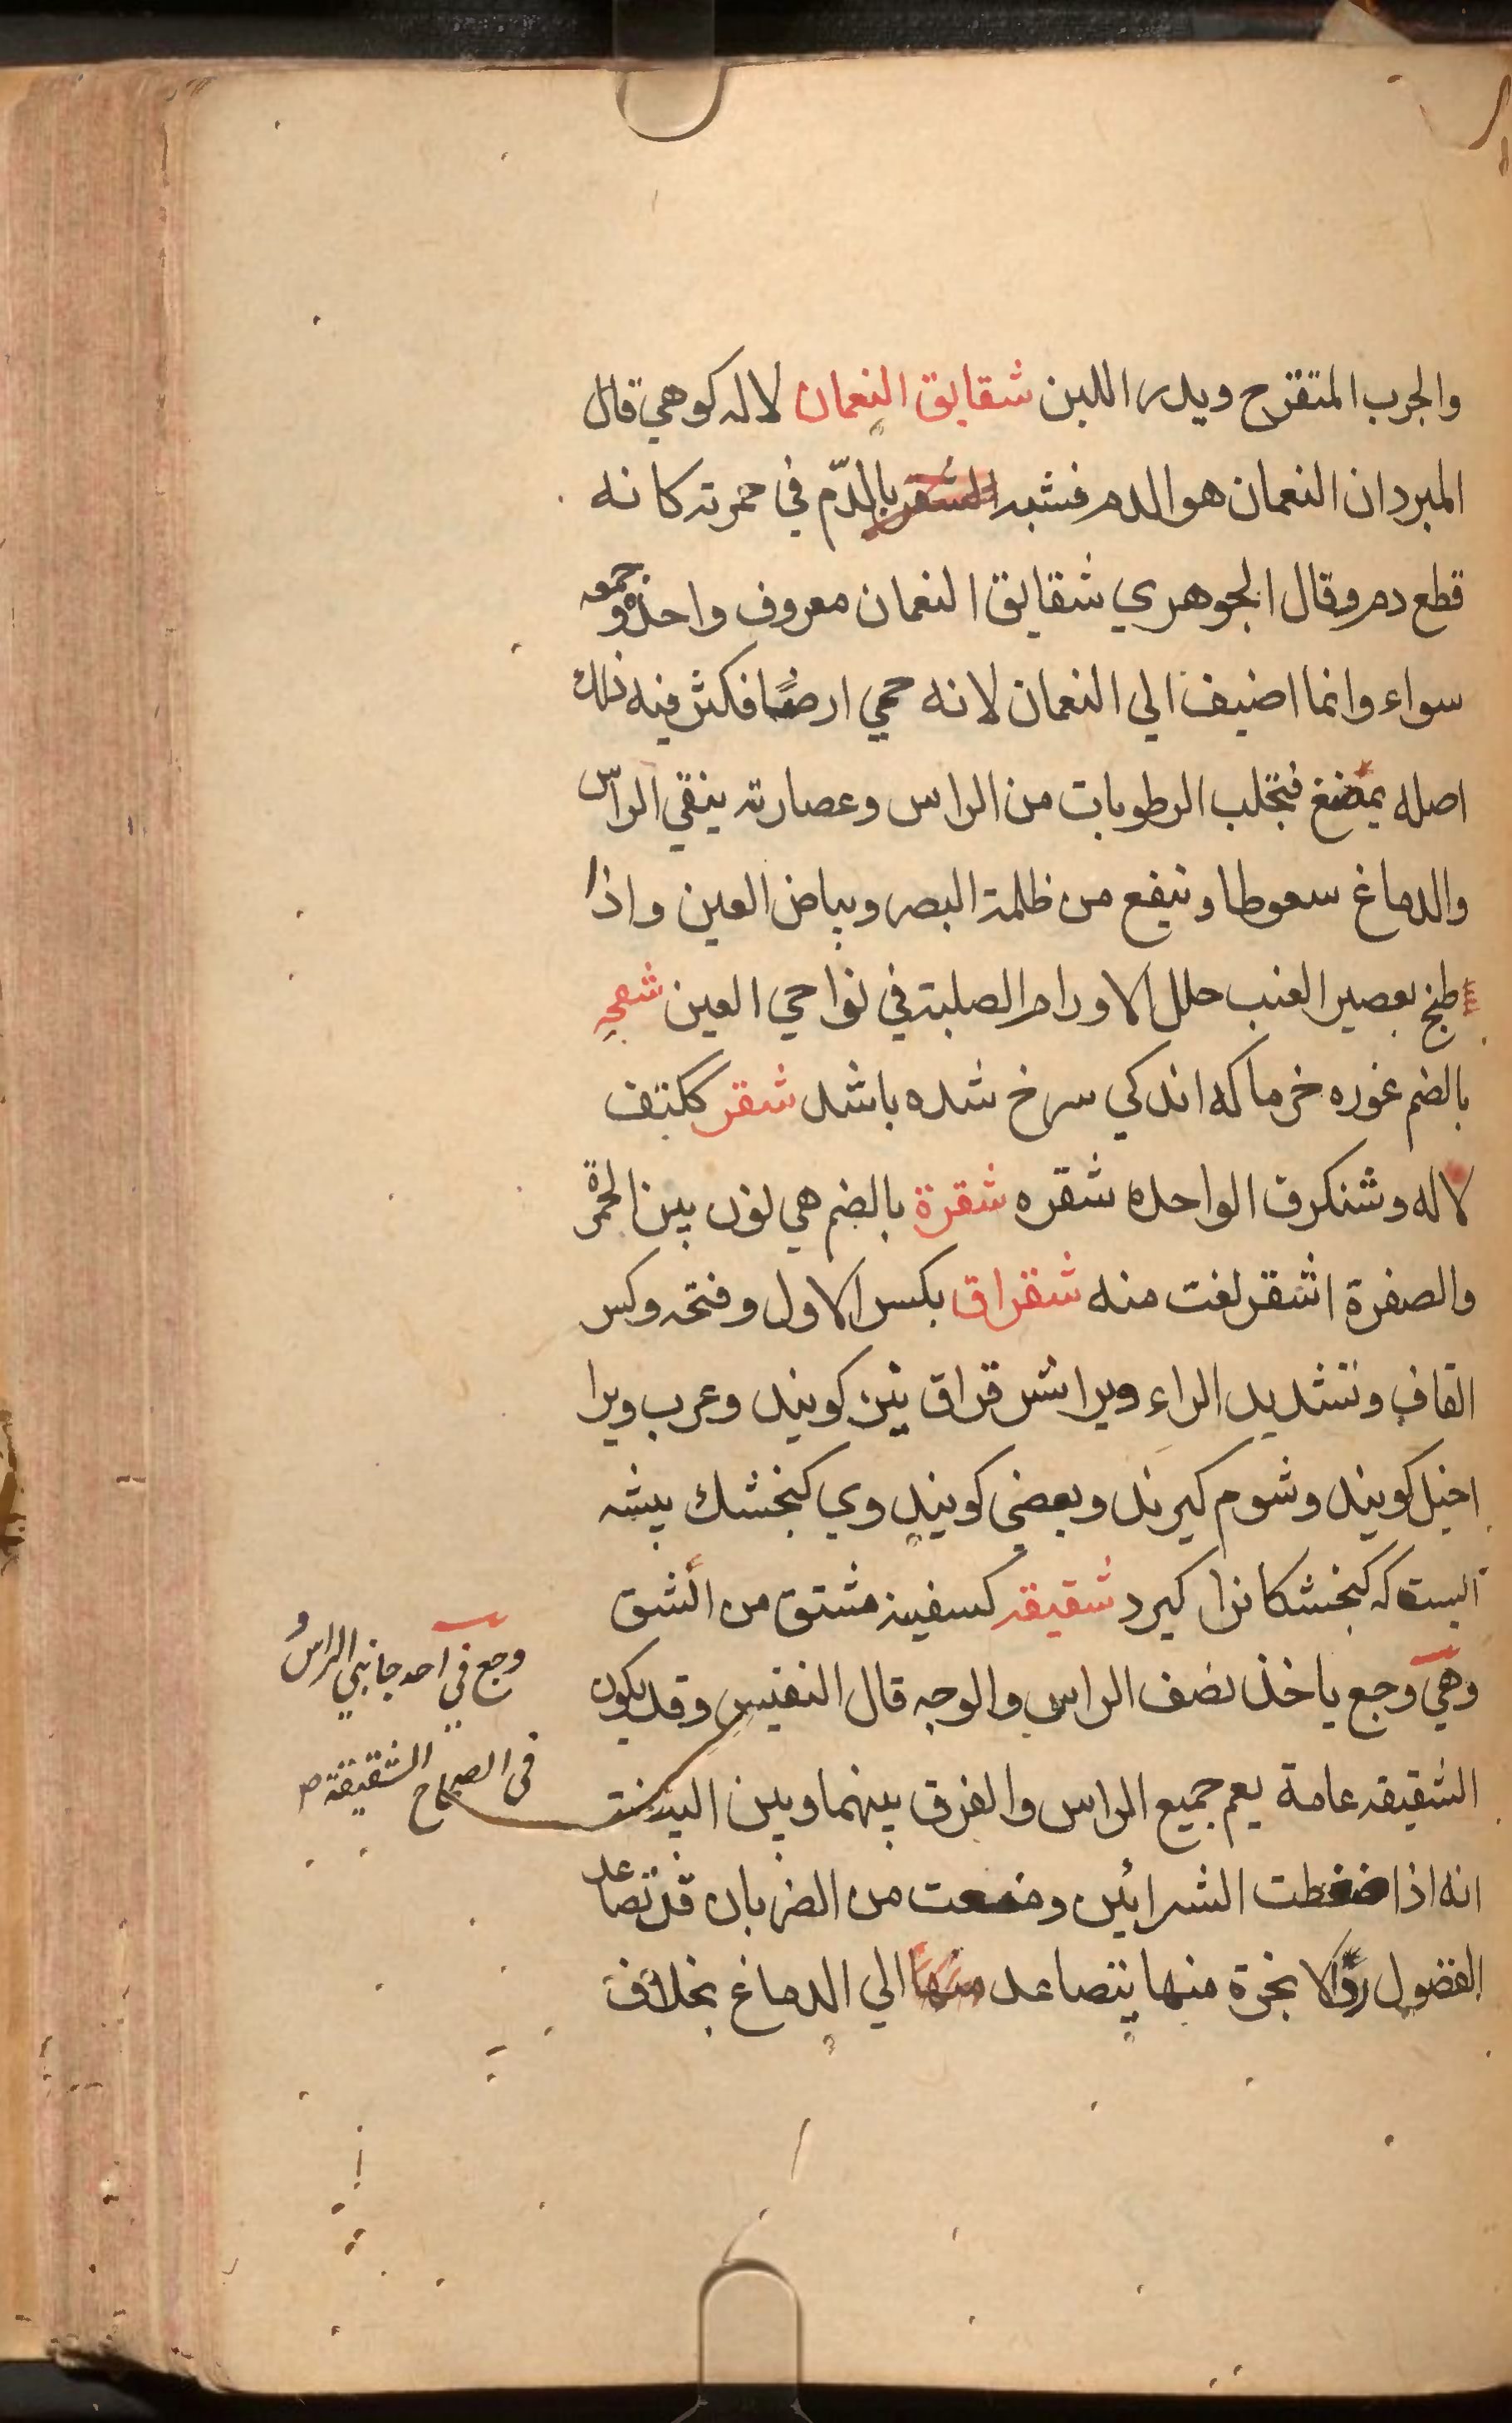 والجرب المتقرح ويدر اللبن شقايق النعمان لاله كوهي قال
المبرد ان النعمان هو الدم فشبه الشقر بالدّم في حمرته كانه
قطع دم وقال الجوهري شقايق النعمان معروف واحده وجمعه
سواء وانما اضيف الي النعمان لانه حمي ارضًا فكثر فيه ذلك
اصله يمضغ فتجلب الرطوبات من الراس وعصارته ينقي الراس
والدماغ سعوطا وينفع من ظلمة البصر وبياض العين واذا
طبخ بعصير العنب حلل الاورام الصلبة في نواحي العين شقح
بالضم غوره خرما كه اندكي سرخ شده باشد شقر ككتف
لاله وشنكرف الواحده شقره شقرة بالضم هي لون بين الحمرة
والصفرة اشقر لغت منه شقراق بكسر الاول وفتحه وكسر
القاف وتشديد الراء ويرا شرقراق نيز كويند وعرب ويرا
اخيل كويند وشوم كيرند وبعضي كويند وي كنجشك بيشه
ايست كه كنجشكانرا كيرد شقيقه كسفينه مشتق من الشق
وهي وجع ياخذ نصف الراس والوجه قال النفيس وقد يكون
الشقيقه عامة يعم جميع الراس والفرق بينهما وبين البيضة
انه اذا ضغطت الشرائين ومنعت من الضربان قد تصاعد
الفضول والابخرة منها يتصاعد منها الي الدماغ بخلاف
وجع في احد جانبي الراس و
في الصحاح الشقيقة ص